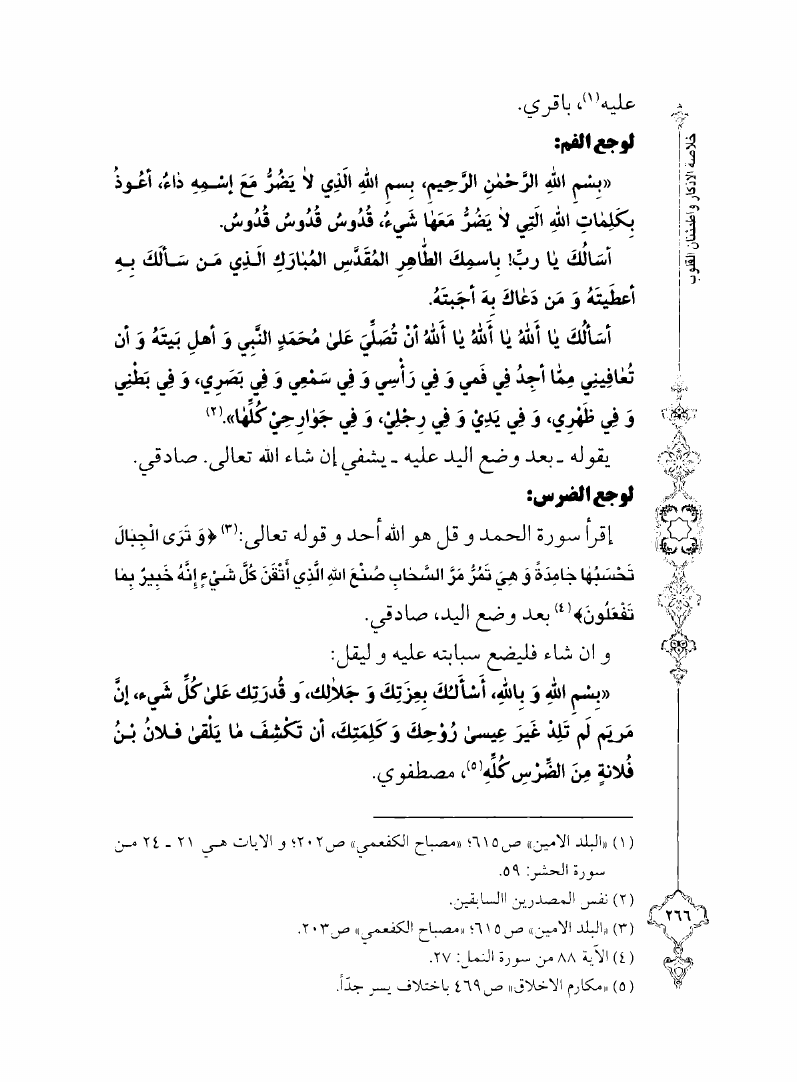 عليه(١)، باقري.
لوجع الفم:
«بِسْمِ اللهِ الرَّحْمٰنِ الرَّحِيمِ، بِسمِ اللهِ الَّذِي لاٰ يَضُرُّ مَعَ إسْمِهِ دٰاءُ، أعُوذُ
بِكَلِمٰاتِ اللهِ الَتِي لاٰ يَضُرُّ مَعَهٰا شَيءُ، قُدُوسُ قُدُوسُ قُدُوسُ.
أسَالُكَ يٰا ربِّ! بِاسمِكَ الطّٰاهِرِ المُقَدَّسِ المُبٰارَكِ الَّذِي مَن سَألَكَ بِهِ
أعطَيتَهُ وَ مَن دَعٰاكَ بِهَ أجَبتَهُ.
أسَألُكَ يٰا أَللهُ يٰا أَللهُ يٰا أَللهُ أنْ تُصَلِّيَ عَلىٰ مُحَمَدٍ النَّبِي وَ أهلِ بَيتَهُ وَ أن
تُعٰافِينِي مِمّٰا أجِدُ فِي فَمي وَ فِي رَأْسِي وَ فِي سَمْعِي وَ فِي بَصَرِي، وَ فِي بَطْنِي
وَ فِي ظَهْرِي، وَ فِي يَدِيْ وَ فِي رِجْلِيْ، وَ فِي جَوٰارِحِيْ كُلِّهٰا».(٢)
يقوله ـ بعد وضع اليد عليه ـ يشفي إن شاء الله تعالى. صادقي.
لوجع الضرس:
إقرأ سورة الحمد و قل هو الله أحد و قوله تعالى:(٣) ﴿وَ تَرَى الْجِبٰالَ
تَحْسَبُهٰا جٰامِدَةً وَ هِيَ تَمُرُّ مَرَّ السَّحٰابِ صُنْعَ اللهِ الَّذِي أَتْقَنَ كُلَّ شَيْءٍ إِنَّهُ خَبِيرٌ بِمٰا
تَفْعَلُونَ﴾(٤) بعد وضع اليد، صادقي.
و ان شاء فليضع سبابته عليه و ليقل:
«بِسْمِ اللهِ وَ بِاللهِ، أسْأَلُكَ بِعِزَتِكَ وَ جَلاٰلِك، وَ قُدرَتِك عَلىٰ كُلِّ شَيء، إنَّ
مَريَم لَم تَلِدْ غَيرَ عِيسىٰ رُوْحِكَ وَ كَلِمَتِكَ، أن تَكْشِفَ مٰا يَلْقىٰ فلانُ بْنُ
فُلانةٍ مِنَ الضِّرْسِ كُلِّهِ(٥)، مصطفوي.
(١) «البلد الامين» ص٦١٥؛ «مصباح الكفعمي» ص٢٠٢؛ و الايات هي ٢١ ـ ٢٤ من
سورة الحشر: ٥٩.
(٢) نفس المصدرين االسابقين.
(٣) «البلد الامين» ص٦١٥؛ «مصباح الكفعمي» ص٢٠٣.
(٤) الآية ٨٨ من سورة النمل: ٢٧.
(٥) «مكارم الاخلاق» ص٤٦٩ باختلاف يسر جدّاً.
خلاصة الاذكار واطمئنان القلوب
٢٦٦